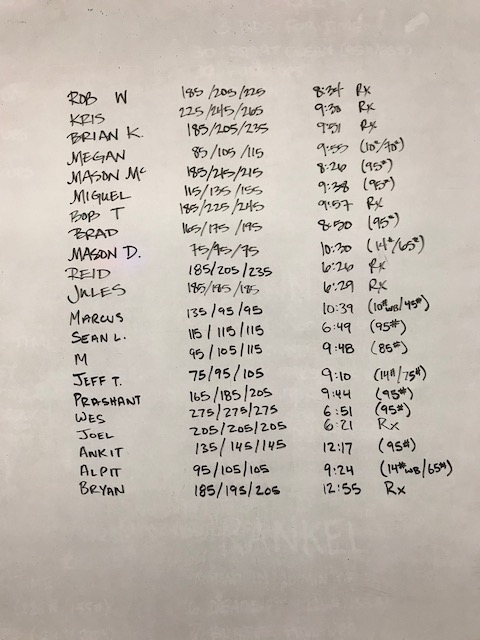 ROB W 185/205/225 8:34 Rx
KRIS 225/245/265 9:38 Rx
BRIAN K. 185/205/235 9:51 Rx
MEGAN 85/105/115 9:55 (10#/70#)
MASON Mc 185/215/215 8:26 (95#)
MIGUEL 115/135/155 9:38 (95#)
BOB T 185/225/245 9:57 Rx
BRAD 165/175/195 8:50 (95#)
MASON D. 75/95/75 10:30 (14#/65#)
REID 185/205/235 6:26 Rx
JULES 185/185/185 6:29 Rx
MARCUS 135/95/95 10:39 (10#WB/45#)
SEAN L. 115/115/115 6:49 (95#)
M 95/105/115 9:48 (85#)
JEFF T. 75/95/105 9:10 (14#/75#)
PRASHANT 165/185/205 9:44 (95#)
WES 275/275/275 6:51 (95#)
JOEL 205/205/205 6:21 Rx
ANKIT 135/145/145 12:17 (95#)
ALPIT 95/105/105 9:24 (14#WB/65#)
BRYAN 185/195/205 12:55 Rx
RANKEL